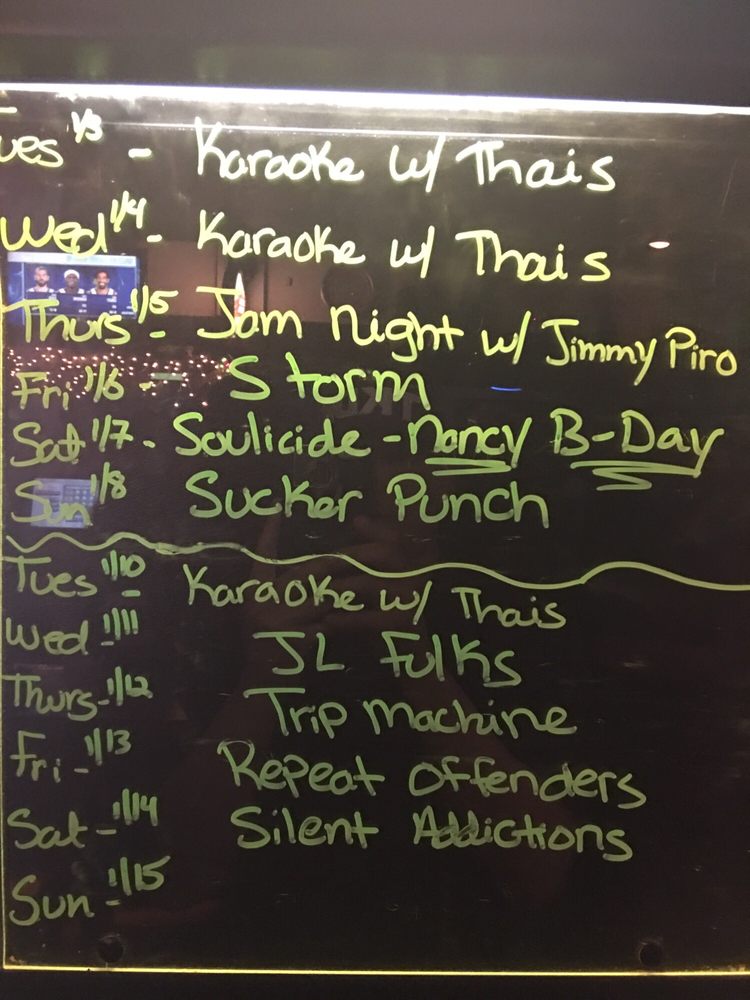 ues 1/3 - Karaoke w/ Thais
Wed 1/4 - Karaoke w/ Thais
Thurs 1/5 - Jam Night w/ Jimmy Piro
Fri 1/6 - Storm
Sat 1/7 - Soulicide - Nancy B-Day
Sun 1/8 Sucker Punch
Tues 1/10 - Karaoke w/ Thais
Wed 1/11 JL Fulks
Thurs - 1/12 Trip Machine
Fri - 1/13 Repeat Offenders
Sat - 1/14 Silent Addictions
Sun - 1/15